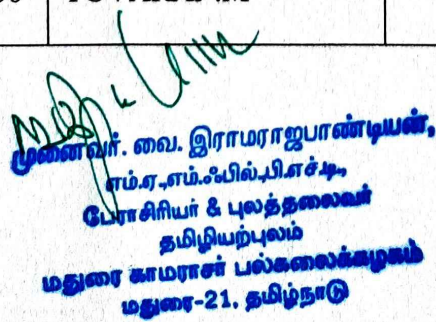 முனைவர். வை. இராமராஜபாண்டியன்,
எம்.ஏ.,எம்.ஃபில்,பி.எச்.டி.,
பேராசிரியர் & புலத்தலைவர்
தமிழியற்புலம்
மதுரை காமராசர் பல்கலைக்கழகம்
மதுரை-21. தமிழ்நாடு